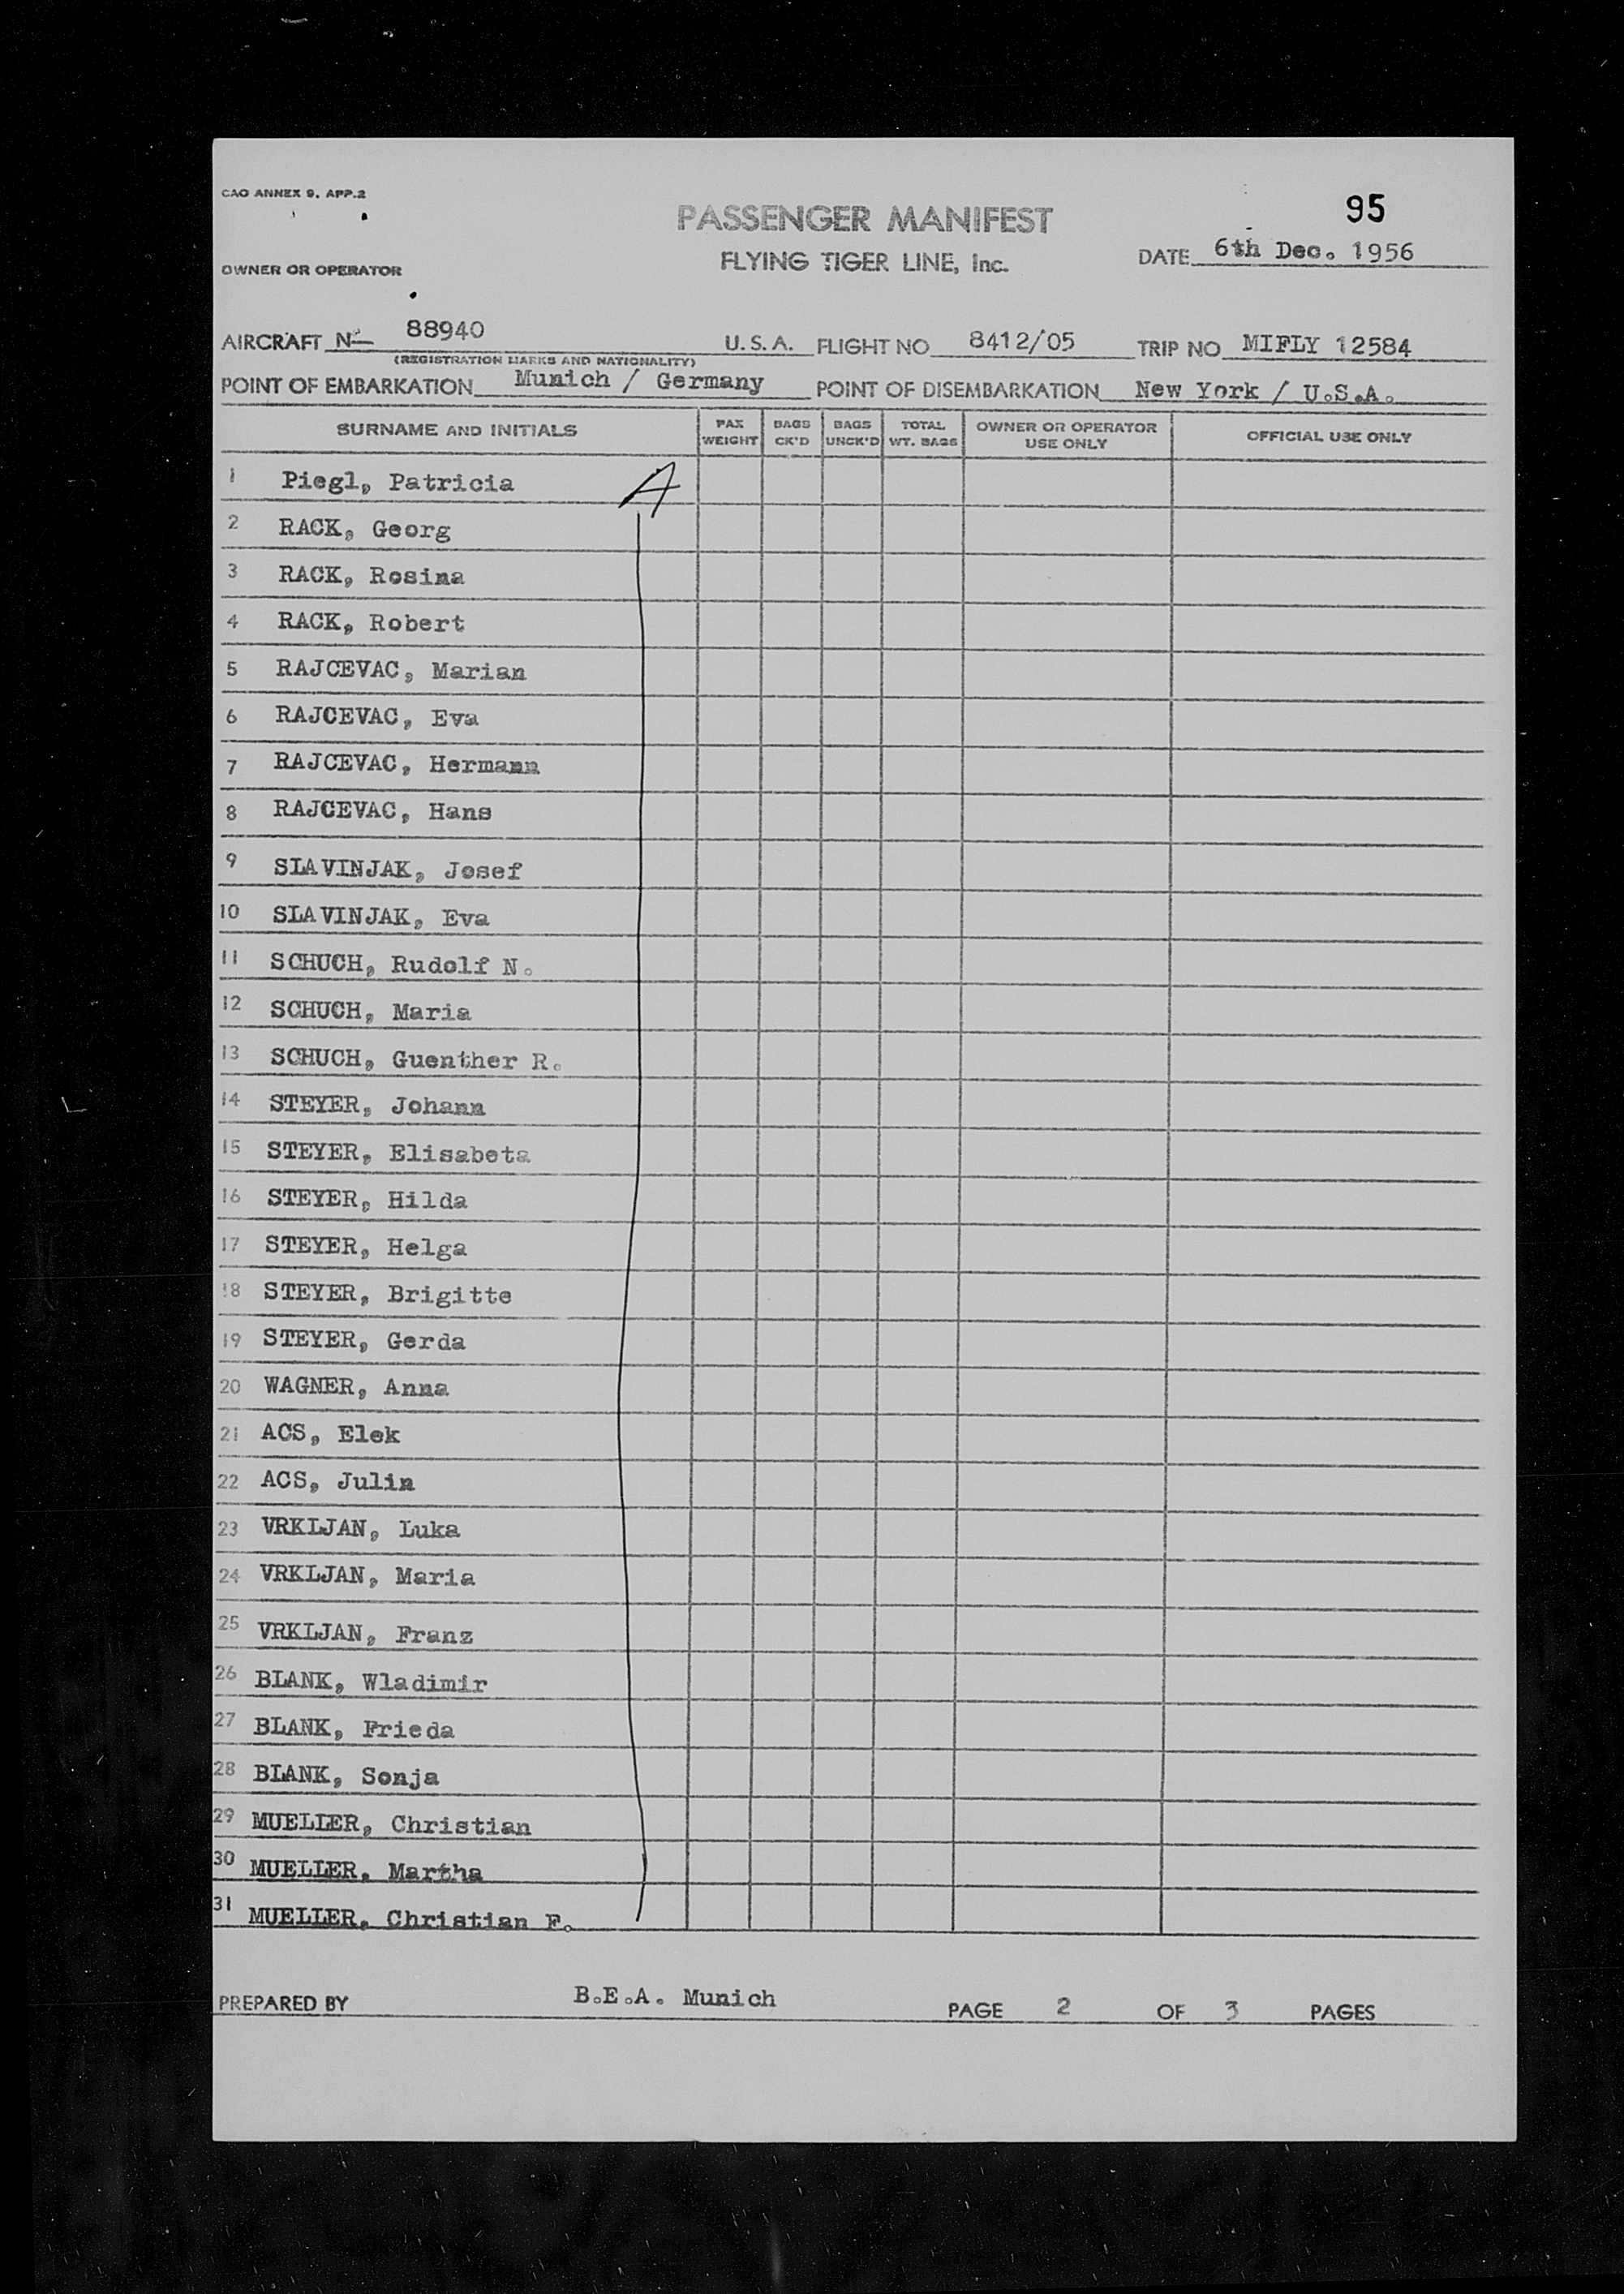 CAO ANNEX 9, APP.2
95
PASSENGER MANIFEST
FLYING TIGER LINE, Inc.
DATE 6th Dec. 1956
OWNER OR OPERATOR
AIRCRAFT N— 88940 U.S.A. FLIGHT NO 8412/05 TRIP NO MIFLY 12584
(REGISTRATION MARKS AND NATIONALITY)
POINT OF EMBARKATION Munich / Germany POINT OF DISEMBARKATION New York / U.S.A.
SURNAME AND INITIALS PAX WEIGHT BAGS CK'D BAGS UNCK'D TOTAL WT. BAGS OWNER OR OPERATOR USE ONLY OFFICIAL USE ONLY
1 Piegl, Patricia A
2 RACK, Georg
3 RACK, Rosina
4 RACK, Robert
5 RAJCEVAC, Marian
6 RAJCEVAC, Eva
7 RAJCEVAC, Hermann
8 RAJCEVAC, Hans
9 SLAVINJAK, Josef
10 SLAVINJAK, Eva
11 SCHUCH, Rudolf N.
12 SCHUCH, Maria
13 SCHUCH, Guenther R.
14 STEYER, Johann
15 STEYER, Elisabeta
16 STEYER, Hilda
17 STEYER, Helga
18 STEYER, Brigitte
19 STEYER, Gerda
20 WAGNER, Anna
21 ACS, Elek
22 ACS, Julin
23 VRKLJAN, Luka
24 VRKLJAN, Maria
25 VRKLJAN, Franz
26 BLANK, Wladimir
27 BLANK, Frieda
28 BLANK, Sonja
29 MUELLER, Christian
30 MUELLER, Martha
31 MUELLER, Christian F.
PREPARED BY B.E.A. Munich PAGE 2 OF 3 PAGES